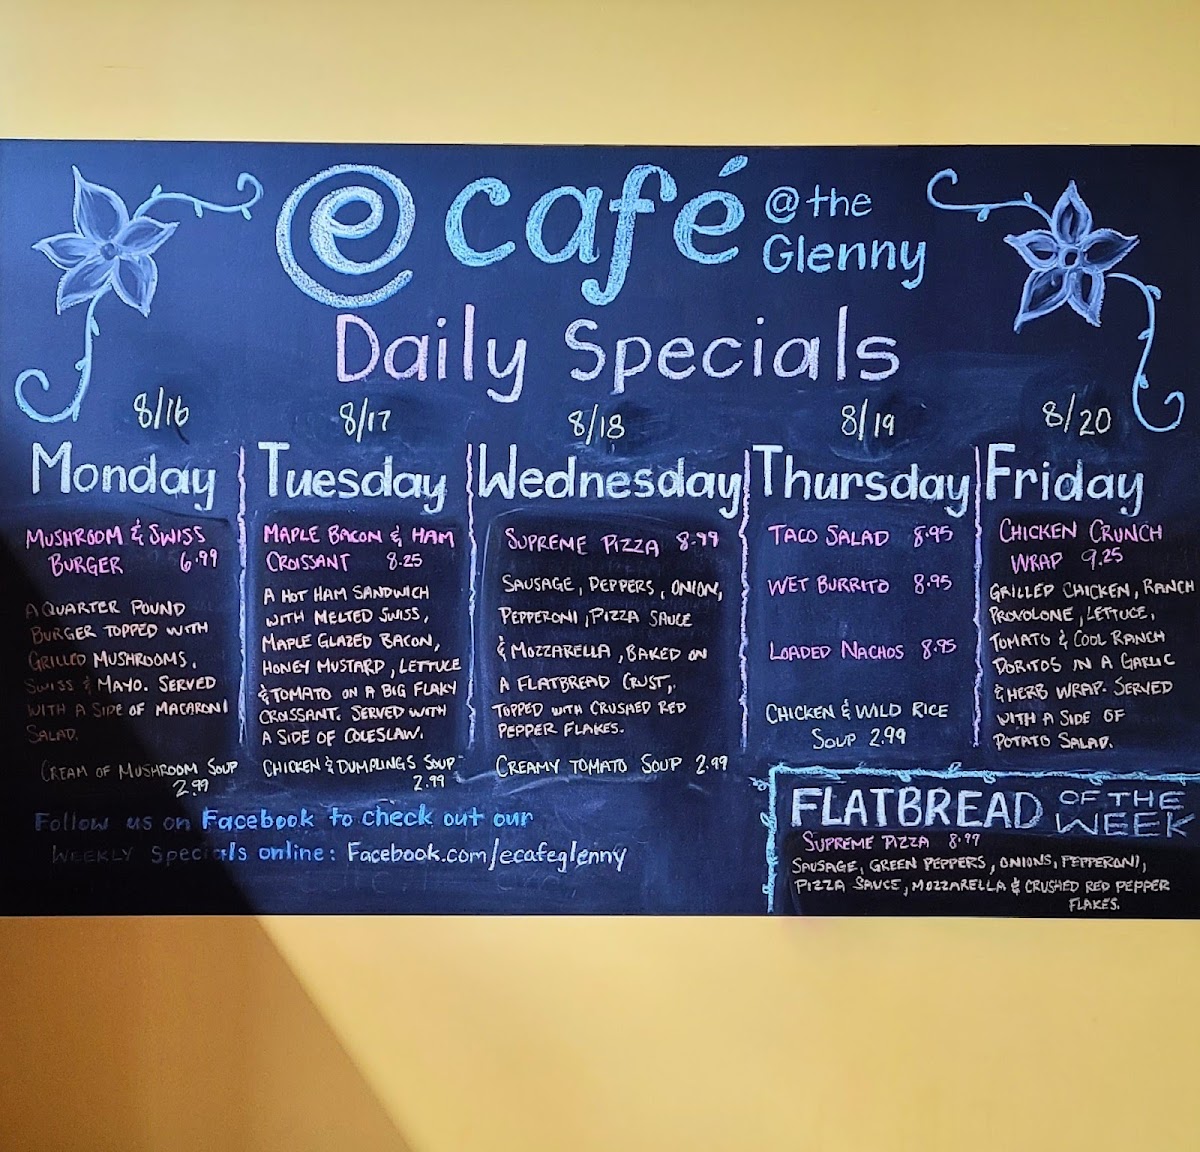 e café @ the
Glenny
Daily Specials
8/16
Monday
MUSHROOM & SWISS
BURGER 6.99
A QUARTER POUND
BURGER TOPPED WITH
GRILLED MUSHROOMS,
SWISS & MAYO. SERVED
WITH A SIDE OF MACARONI
SALAD.
CREAM OF MUSHROOM SOUP
2.99
8/17
Tuesday
MAPLE BACON & HAM
CROISSANT 8.25
A HOT HAM SANDWICH
WITH MELTED SWISS,
MAPLE GLAZED BACON,
HONEY MUSTARD, LETTUCE
& TOMATO ON A BIG FLAKY
CROISSANT. SERVED WITH
A SIDE OF COLESLAW.
CHICKEN & DUMPLINGS SOUP
2.99
8/18
Wednesday
SUPREME PIZZA 8.99
SAUSAGE, PEPPERS, ONION,
PEPPERONI, PIZZA SAUCE
& MOZZARELLA, BAKED ON
A FLATBREAD CRUST,
TOPPED WITH CRUSHED RED
PEPPER FLAKES.
CREAMY TOMATO SOUP 2.99
8/19
Thursday
TACO SALAD 8.95
WET BURRITO 8.95
LOADED NACHOS 8.95
CHICKEN & WILD RICE
SOUP 2.99
8/20
Friday
CHICKEN CRUNCH
WRAP 9.25
GRILLED CHICKEN, RANCH
PROVOLONE, LETTUCE,
TOMATO & COOL RANCH
DORITOS IN A GARLIC
& HERB WRAP. SERVED
WITH A SIDE OF
POTATO SALAD.
Follow us on Facebook to check out our
WEEKLY Specials online: Facebook.com/ecafeglenny
FLATBREAD OF THE
WEEK
SUPREME PIZZA 8.99
SAUSAGE, GREEN PEPPERS, ONIONS, PEPPERONI,
PIZZA SAUCE, MOZZARELLA & CRUSHED RED PEPPER
FLAKES.